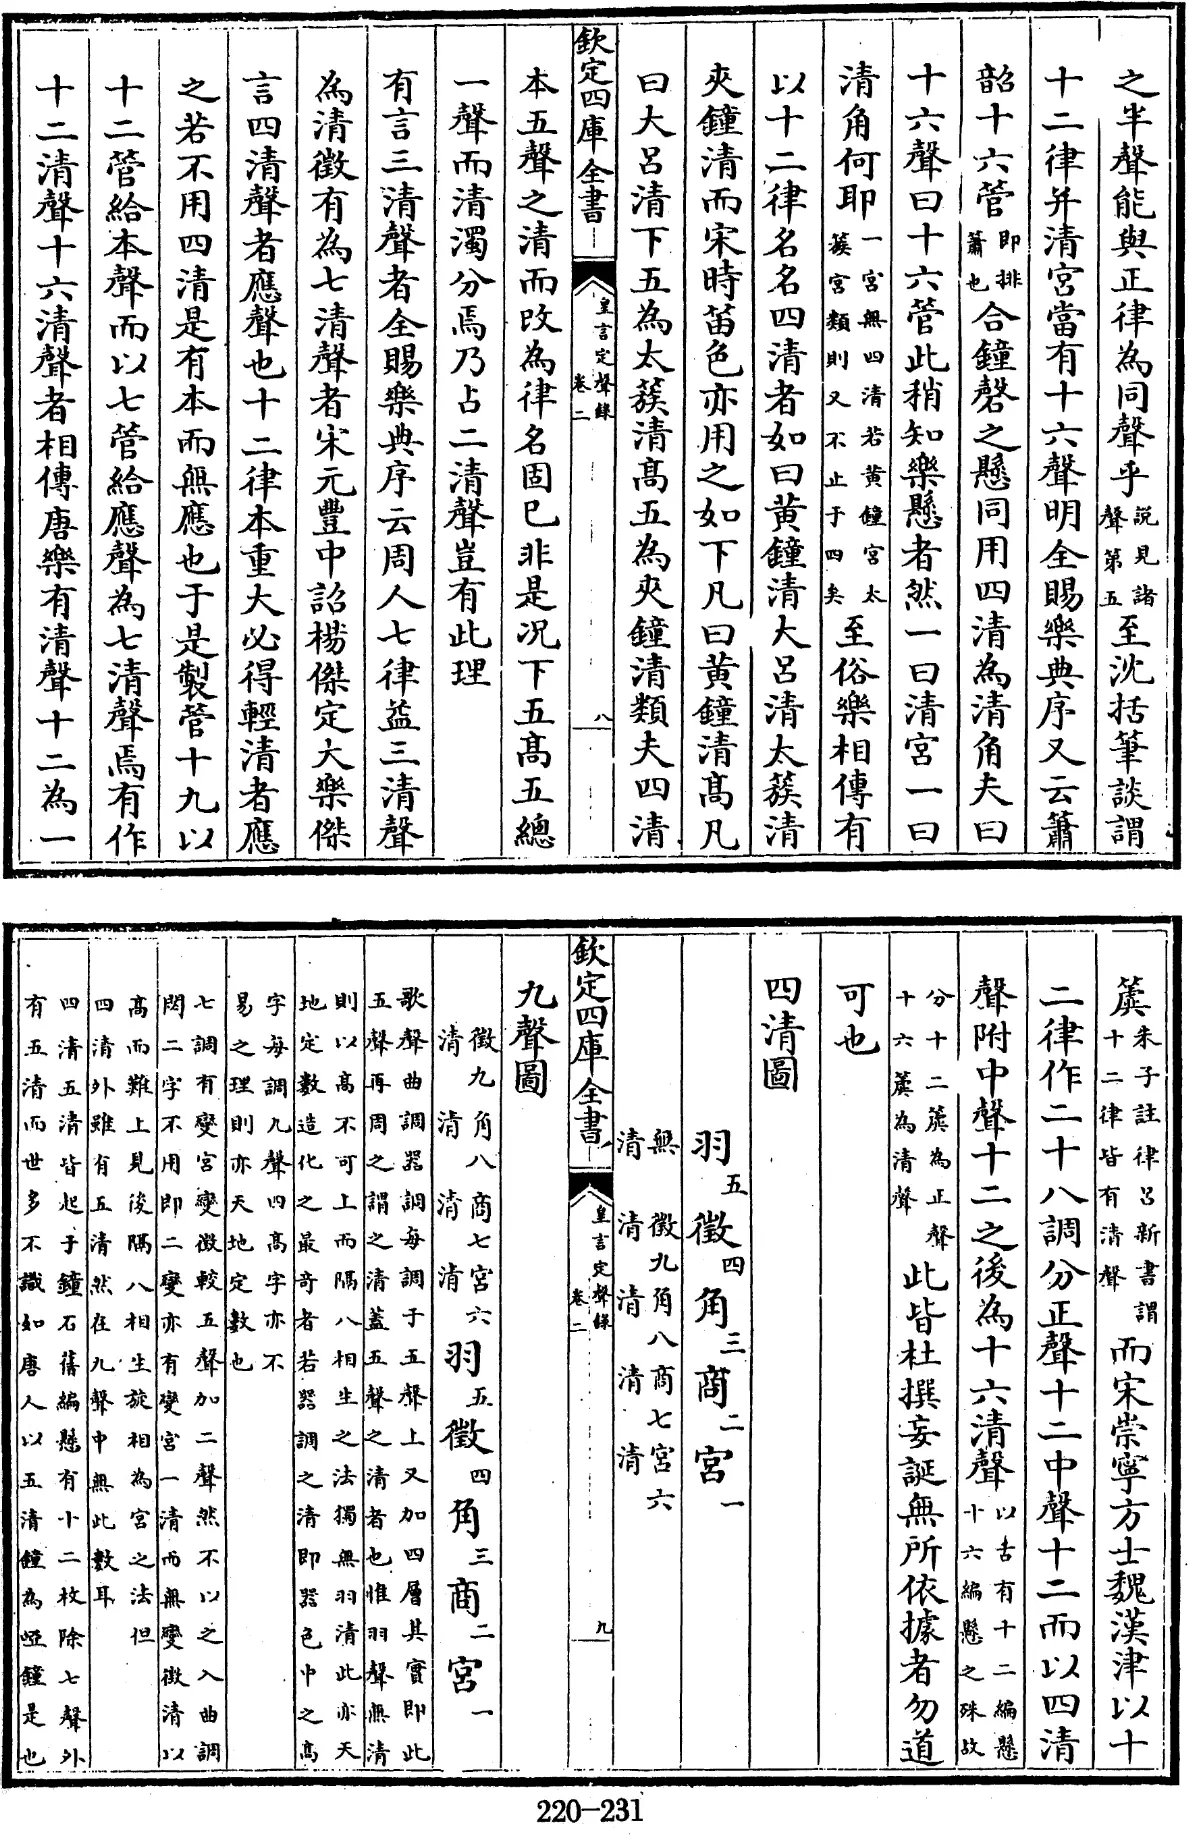 之半聲能與正律為同聲乎說見諸聲第五至沈括筆談謂
十二律并清宫當有十六聲明全賜樂典序又云簫
韶十六管即排簫也合鐘磬之懸同用四清為清角夫曰
十六聲曰十六管此稍知樂懸者然一曰清宫一曰
清角何耶一宫無四清若黄鐘宫太蔟宫類則又不止于四矣至俗樂相傳有
以十二律名名四清者如曰黄鐘清大吕清太蔟清
夾鐘清而宋時笛色亦用之如下凡曰黄鐘清髙凡
曰大吕清下五為太蔟清髙五為夾鐘清類夫四清
欽定四庫全書
皇言定聲錄
卷二
八
本五聲之清而改為律名固已非是况下五髙五總
一聲而清濁分焉乃占二清聲豈有此理
有言三清聲者全賜樂典序云周人七律益三清聲
為清徵有為七清聲者宋元豐中詔楊傑定大樂傑
言四清聲者應聲也十二律本重大必得輕清者應
之若不用四清是有本而無應也于是製管十九以
十二管給本聲而以七管給應聲為七清聲焉有作
十二清聲十六清聲者相傳唐樂有清聲十二為一
簴朱子註律吕新書謂十二律皆有清聲而宋崇寧方士魏漢津以十
二律作二十八調分正聲十二中聲十二而以四清
聲附中聲十二之後為十六清聲以古有十二編懸十六編懸之殊故
分十二簴為正聲十六簴為清聲此皆杜撰妄誕無所依據者勿道
可也
四清圖
羽五徵四角三商二宫一
無清徵九清角八清商七清宫六
欽定四庫全書
皇言定聲錄
卷二
九
九聲圖
徵九清角八清商七清宫六清羽五徵四角三商二宫一
歌聲曲調器調每調于五聲上又加四層其實即此
五聲再周之謂之清蓋五聲之清者也惟羽聲無清
則以髙不可上而隔八相生之法獨無羽清此亦天
地定數造化之最奇者若器調之清即器色中之髙
字每調九聲四髙字亦不
易之理則亦天地定數也
七調有變宫變徵較五聲加二聲然不以之入曲調
閲二字不用即二變亦有變宫一清而無變徵清以
髙而難上見後隔八相生旋相為宫之法但
四清外雖有五清然在九聲中無此數耳
四清五清皆起于鐘石舊編懸有十二枚除七聲外
有五清而世多不識如唐人以五清鐘為啞鐘是也
220-231